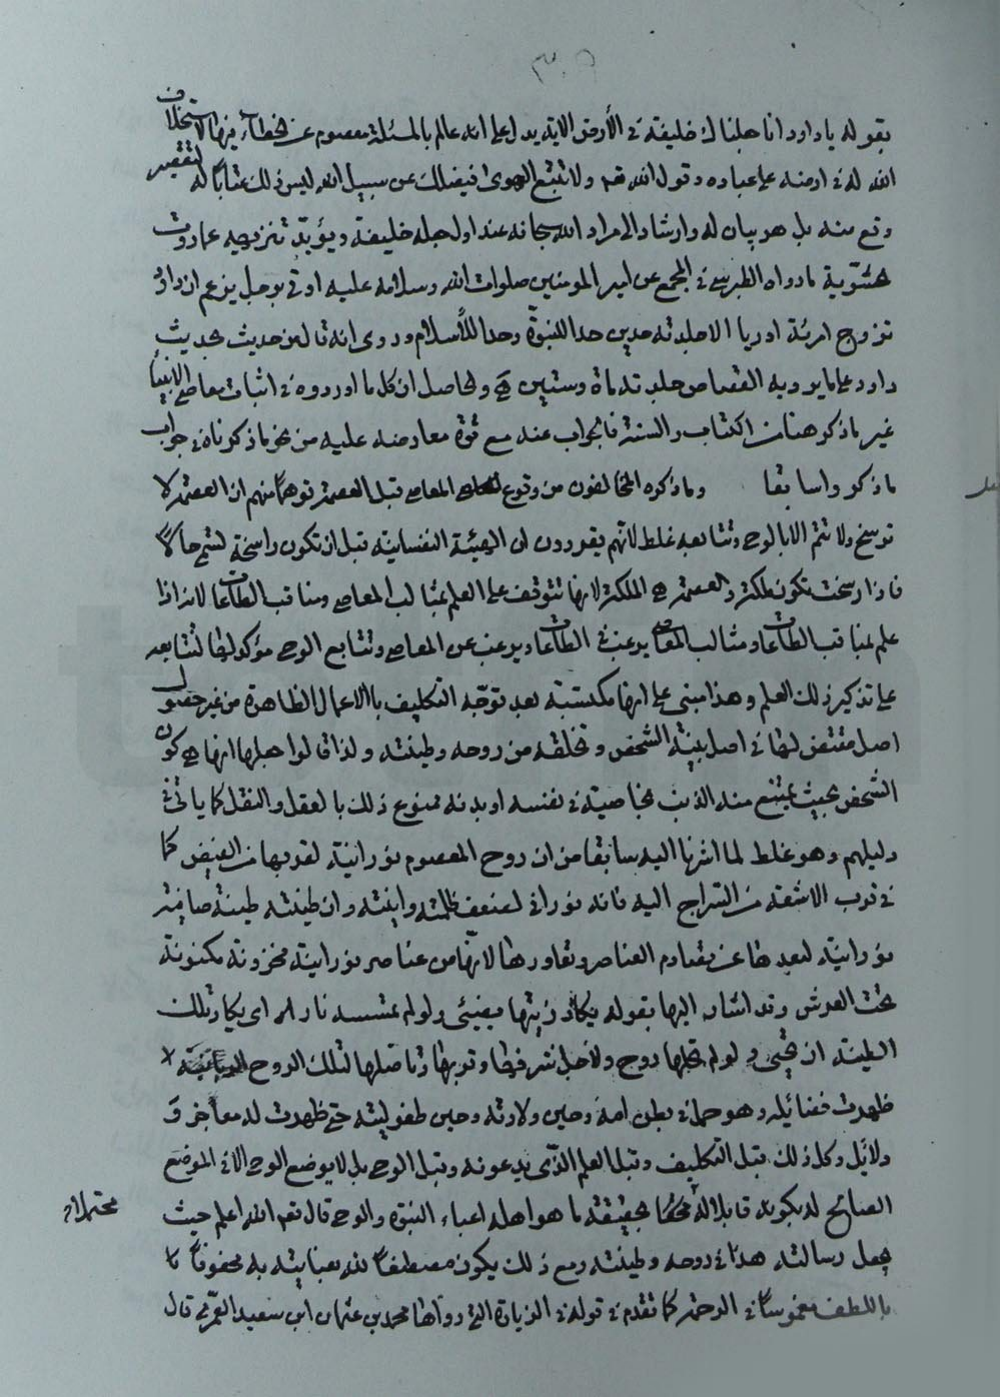 ٣٠٩
بقوله يا داود انا جعلناك خليفة في الأرض الاية يدل على انه عالم بالمسئلة معصوم عن الخطاء فيها لاستخلاف
الله له في ارضه على عباده وقول الله تعم ولا تتبع الهوى فيضلك عن سبيل الله ليس ذلك عتابا له لتقصير
وقع منه بل هو بيان له وارشاد الى مراد الله سبحانه عند اول جعله خليفة ويؤيد تنزيهه عما روت
حشوية ما رواه الطبرسي في المجمع عن امير المومنين صلوات الله وسلامه عليه اوتى برجل يزعم ان داود
تزوج امرئة اوريا الا جلدته حدين حدا للنبوة وحدا للأسلام وروى انه قال من حدث بحديث
داود على ما يرويه القصاص جلدته مأة وستين والحاصل ان كل ما اوردوه في اثبات معاصي الانبياء
غير ما ذكر هنا من الكتاب والسنة فالجواب عنه مع قوة معارضه عليه من نحو ما ذكرناه في جواب
ما ذكروا سابقا وما ذكره المخالفون من وقوع المعاصي قبل العصمة توهما منهم ان العصمة لا
ترسخ ولا تتم الا بالوحي وتتابعه غلط لانهم يقررون ان الهيئة النفسانية قبل ان تكون راسخة تسمى حالا
فاذا رسخت تكون ملكة والعصمة هي الملكة لانها تتوقف على العلم بمثالب المعاصي ومناقب الطاعات لانه اذا
علم بمناقب الطاعات ومثالب المعاصي يرغب في الطاعات ويرغب عن المعاصي وتتابع الوحي مؤكد لها لتتابعه
على تذكير ذلك العلم وهذا مبنى على انها مكتسبة بعد توجه التكليف بالاعمال الظاهرة من غير حصول
اصل مقتض لها في اصل بنية الشخص وتخلقه من روحه وطينته ولذا قالوا انها هي كون
الشخص بحيث يمتنع منه الذنب بخاصية في نفسه او بدنه ممنوع ذلك بالعقل والنقل كما ياتى في
دليلهم وهو غلط لما اشرنا اليه سابقا من ان روح المعصوم نورانية لقربها من الفيض كما
في قرب الاشعة من السراج اليه فانه نوراني لضعف ظلمته وانيته وان طينته طينة صافية
نورانية لبعدها عن تصادم العناصر وتعاورها لانها من عناصر نورانية مخزونة مكنونة
تحت العرش وقد اشار اليها بقوله يكاد زيتها يضيئ ولو لم تمسسه نار اي يكاد تلك
الطينة ان تحيى ولو لم تحلها روح ولاجل شرفها وقربها وتاصلها لتلك الروح
ظهرت فضائله وهو حمل في بطن امه وحين ولادته وحين طفوليته حتى ظهرت له معاجز و
دلائل وكل ذلك قبل التكليف وقبل العلم الذي يدعونه وقبل الوحي بل لا يوضع الوحي الا في الموضع
الصالح له بكونه قابلا له بحقيقة ما هو اهله اعباء النبوة والوحي قال تعم الله اعلم حيث
محتملا
يجعل رسالته هذا في روحه وطينته ومع ذلك يكون مصطفا لله بعنايته به محفوفا
باللطف مغموسا في الرحمة كما تقدم في قوله في الزيارة التي رواها محمد بن عثمان ابن سعيد العمري قال